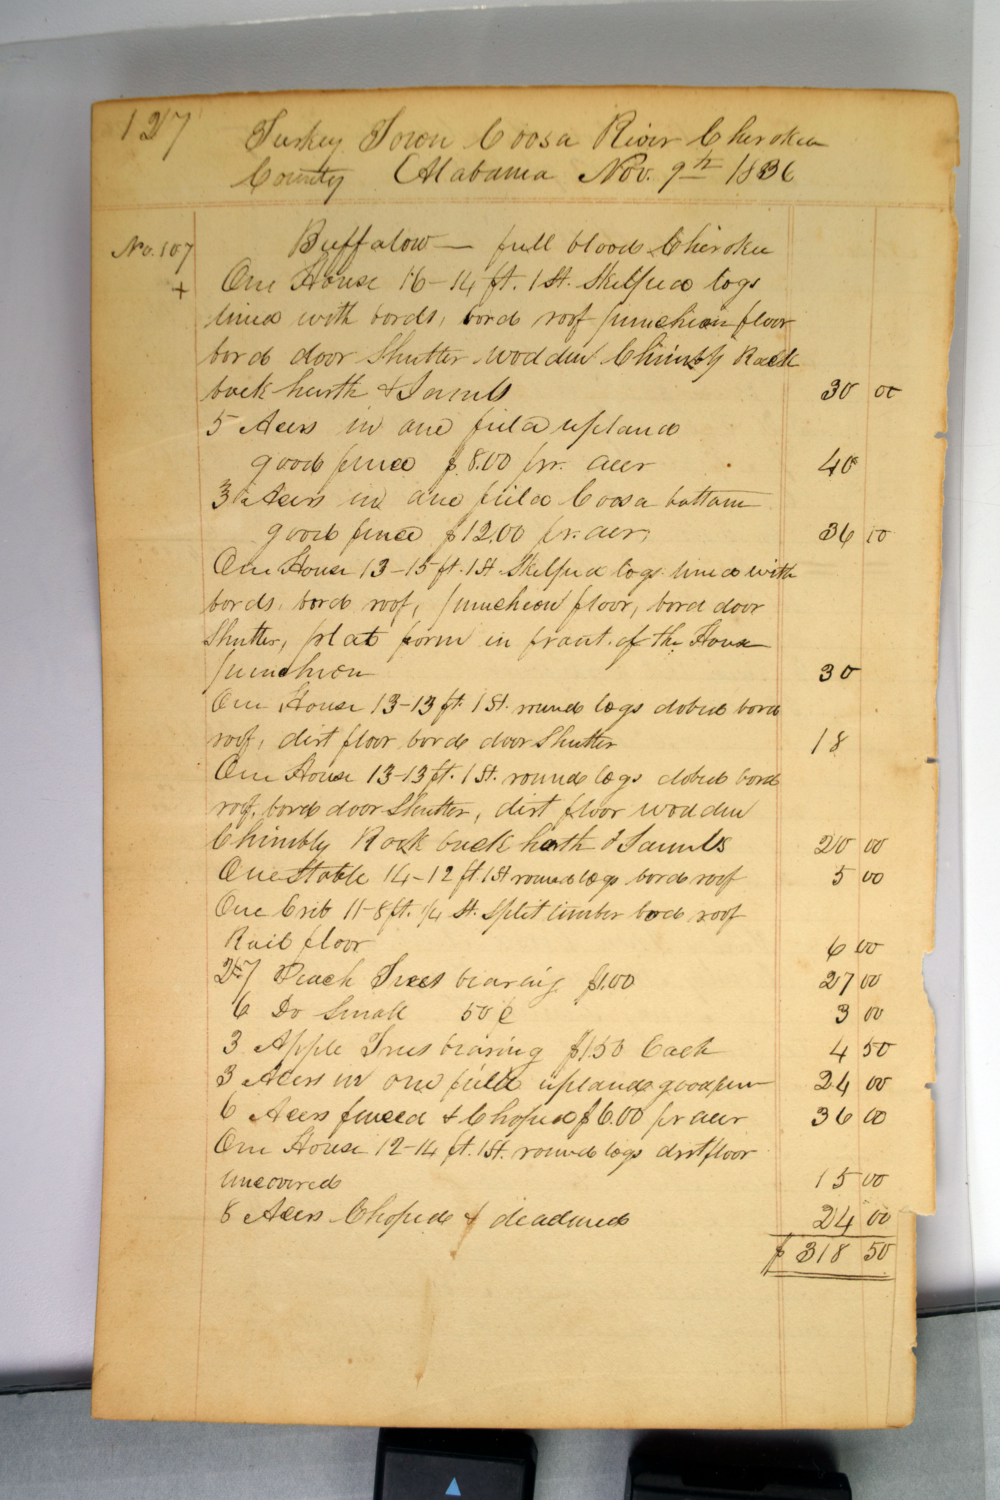 127
Turkey Town Coosa River Cherokee
County Alabama Nov. 9th 1836
No. 107 Buffalow — full blood Cherokee
+ One House 16-14 ft. 1 St. Skelped logs
lined with bords, bord roof puncheion floor
bord door Shutter wodden Chimbly Rock
back hearth & Jamls 30 00
5 Acers in one field upland
good fence $8.00 pr. acer 40
3 Acers in one field Coosa bottam
good fence $12.00 pr. acer, 36 00
One House 13-15 ft. 1 St. Skelped logs lined with
bords, bord roof, puncheion floor, bord door
Shutter, plat form in frant of the House
puncheion 30
One House 13-13 ft. 1 St. round logs dobed bord
roof, dirt floor bord door Shutter 18
One House 13-13 ft. 1 St. round logs dobed bord
roof, bord door Shutter, dirt floor wodden
Chimbly Rock back harth & Jamls 20 00
One Stable 14-12 ft. 1 St round logs bord roof 5 00
One Crib 11-8 ft. 1/4 St. Split timber bord roof
Rail floor 6 00
27 Peach Trees bearing $1.00 27 00
6 Do Small 50 c 3 00
3 Apple Trees bearing $1.50 Each 4 50
3 Acers in one field upland good fen 24 00
6 Acers fenced & Choped $6.00 pr acer 36 00
One House 12-14 ft. 1 St. round logs dirt floor
uncovered 15 00
8 Acers Choped & deadned 24 00
$ 318 50